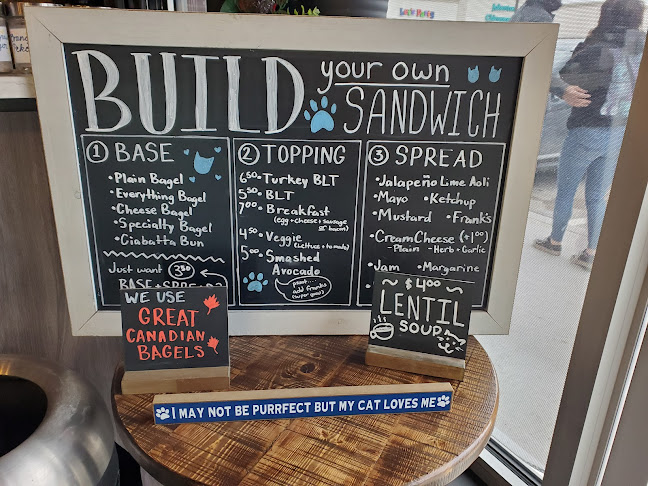 BUILD your own SANDWICH
1 BASE
• Plain Bagel
• Everything Bagel
• Cheese Bagel
• Specialty Bagel
• Ciabatta Bun
Just want 3⁵⁰
BASE + SPREAD
2 TOPPING
6⁵⁰ • Turkey BLT
5⁵⁰ • BLT
7⁰⁰ • Breakfast
(egg + cheese + sausage
or bacon)
4⁵⁰ • Veggie
(lettuce + tomato)
5⁰⁰ • Smashed
Avocado
psst...
add franks
(super good)
3 SPREAD
• Jalapeño Lime Aoli
• Mayo • Ketchup
• Mustard • Frank's
• Cream Cheese (+1⁰⁰)
- Plain - Herb + Garlic
• Jam • Margarine
WE USE
GREAT
CANADIAN
BAGELS
~ $4⁰⁰ ~
LENTIL
SOUP
I MAY NOT BE PURRFECT BUT MY CAT LOVES ME